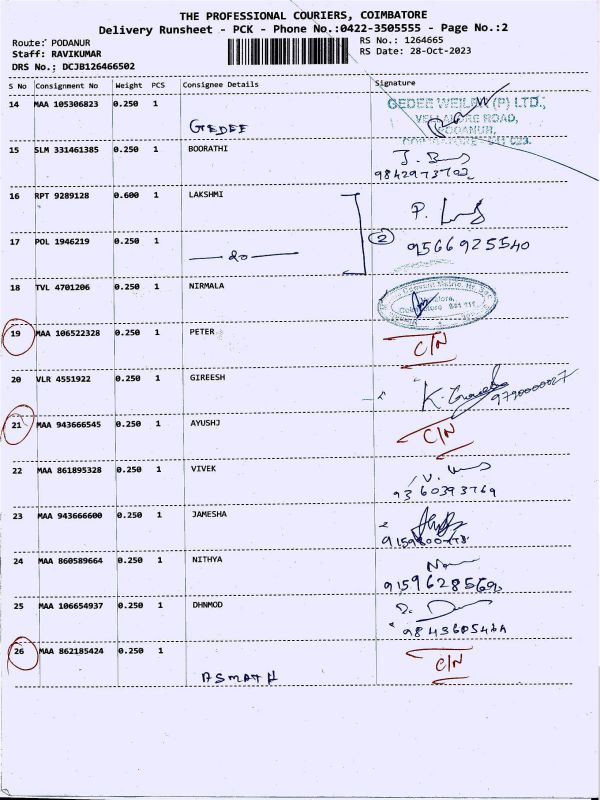 THE PROFESSIONAL COURIERS, COIMBATORE
Delivery Runsheet - PCK - Phone No.:0422-3505555 - Page No.:2
Route: PODANUR RS No.: 1264665
Staff: RAVIKUMAR RS Date: 28-Oct-2023
DRS No.: DCJB126466502
S No Consignment No Weight PCS Consignee Details Signature
14 MAA 105306823 0.250 1
GEDEE
GEDEE WEILER (P) LTD.,
VELLALORE ROAD,
PODANUR,
15 SLM 331461385 0.250 1 BOORATHI
9842973702
16 RPT 9289128 0.600 1 LAKSHMI
P.
17 POL 1946219 0.250 1
do
2
9566925540
18 TVL 4701206 0.250 1 NIRMALA
19 MAA 106522328 0.250 1 PETER
C/N
20 VLR 4551922 0.250 1 GIREESH
K.
9790000027
21 MAA 943666545 0.250 1 AYUSHJ
C/N
22 MAA 861895328 0.250 1 VIVEK
V.
9360393769
23 MAA 943666600 0.250 1 JAMESHA
24 MAA 860589664 0.250 1 NITHYA
9159628569
25 MAA 106654937 0.250 1 DHNMOD
D.
26 MAA 862185424 0.250 1
C/N
ASMATH